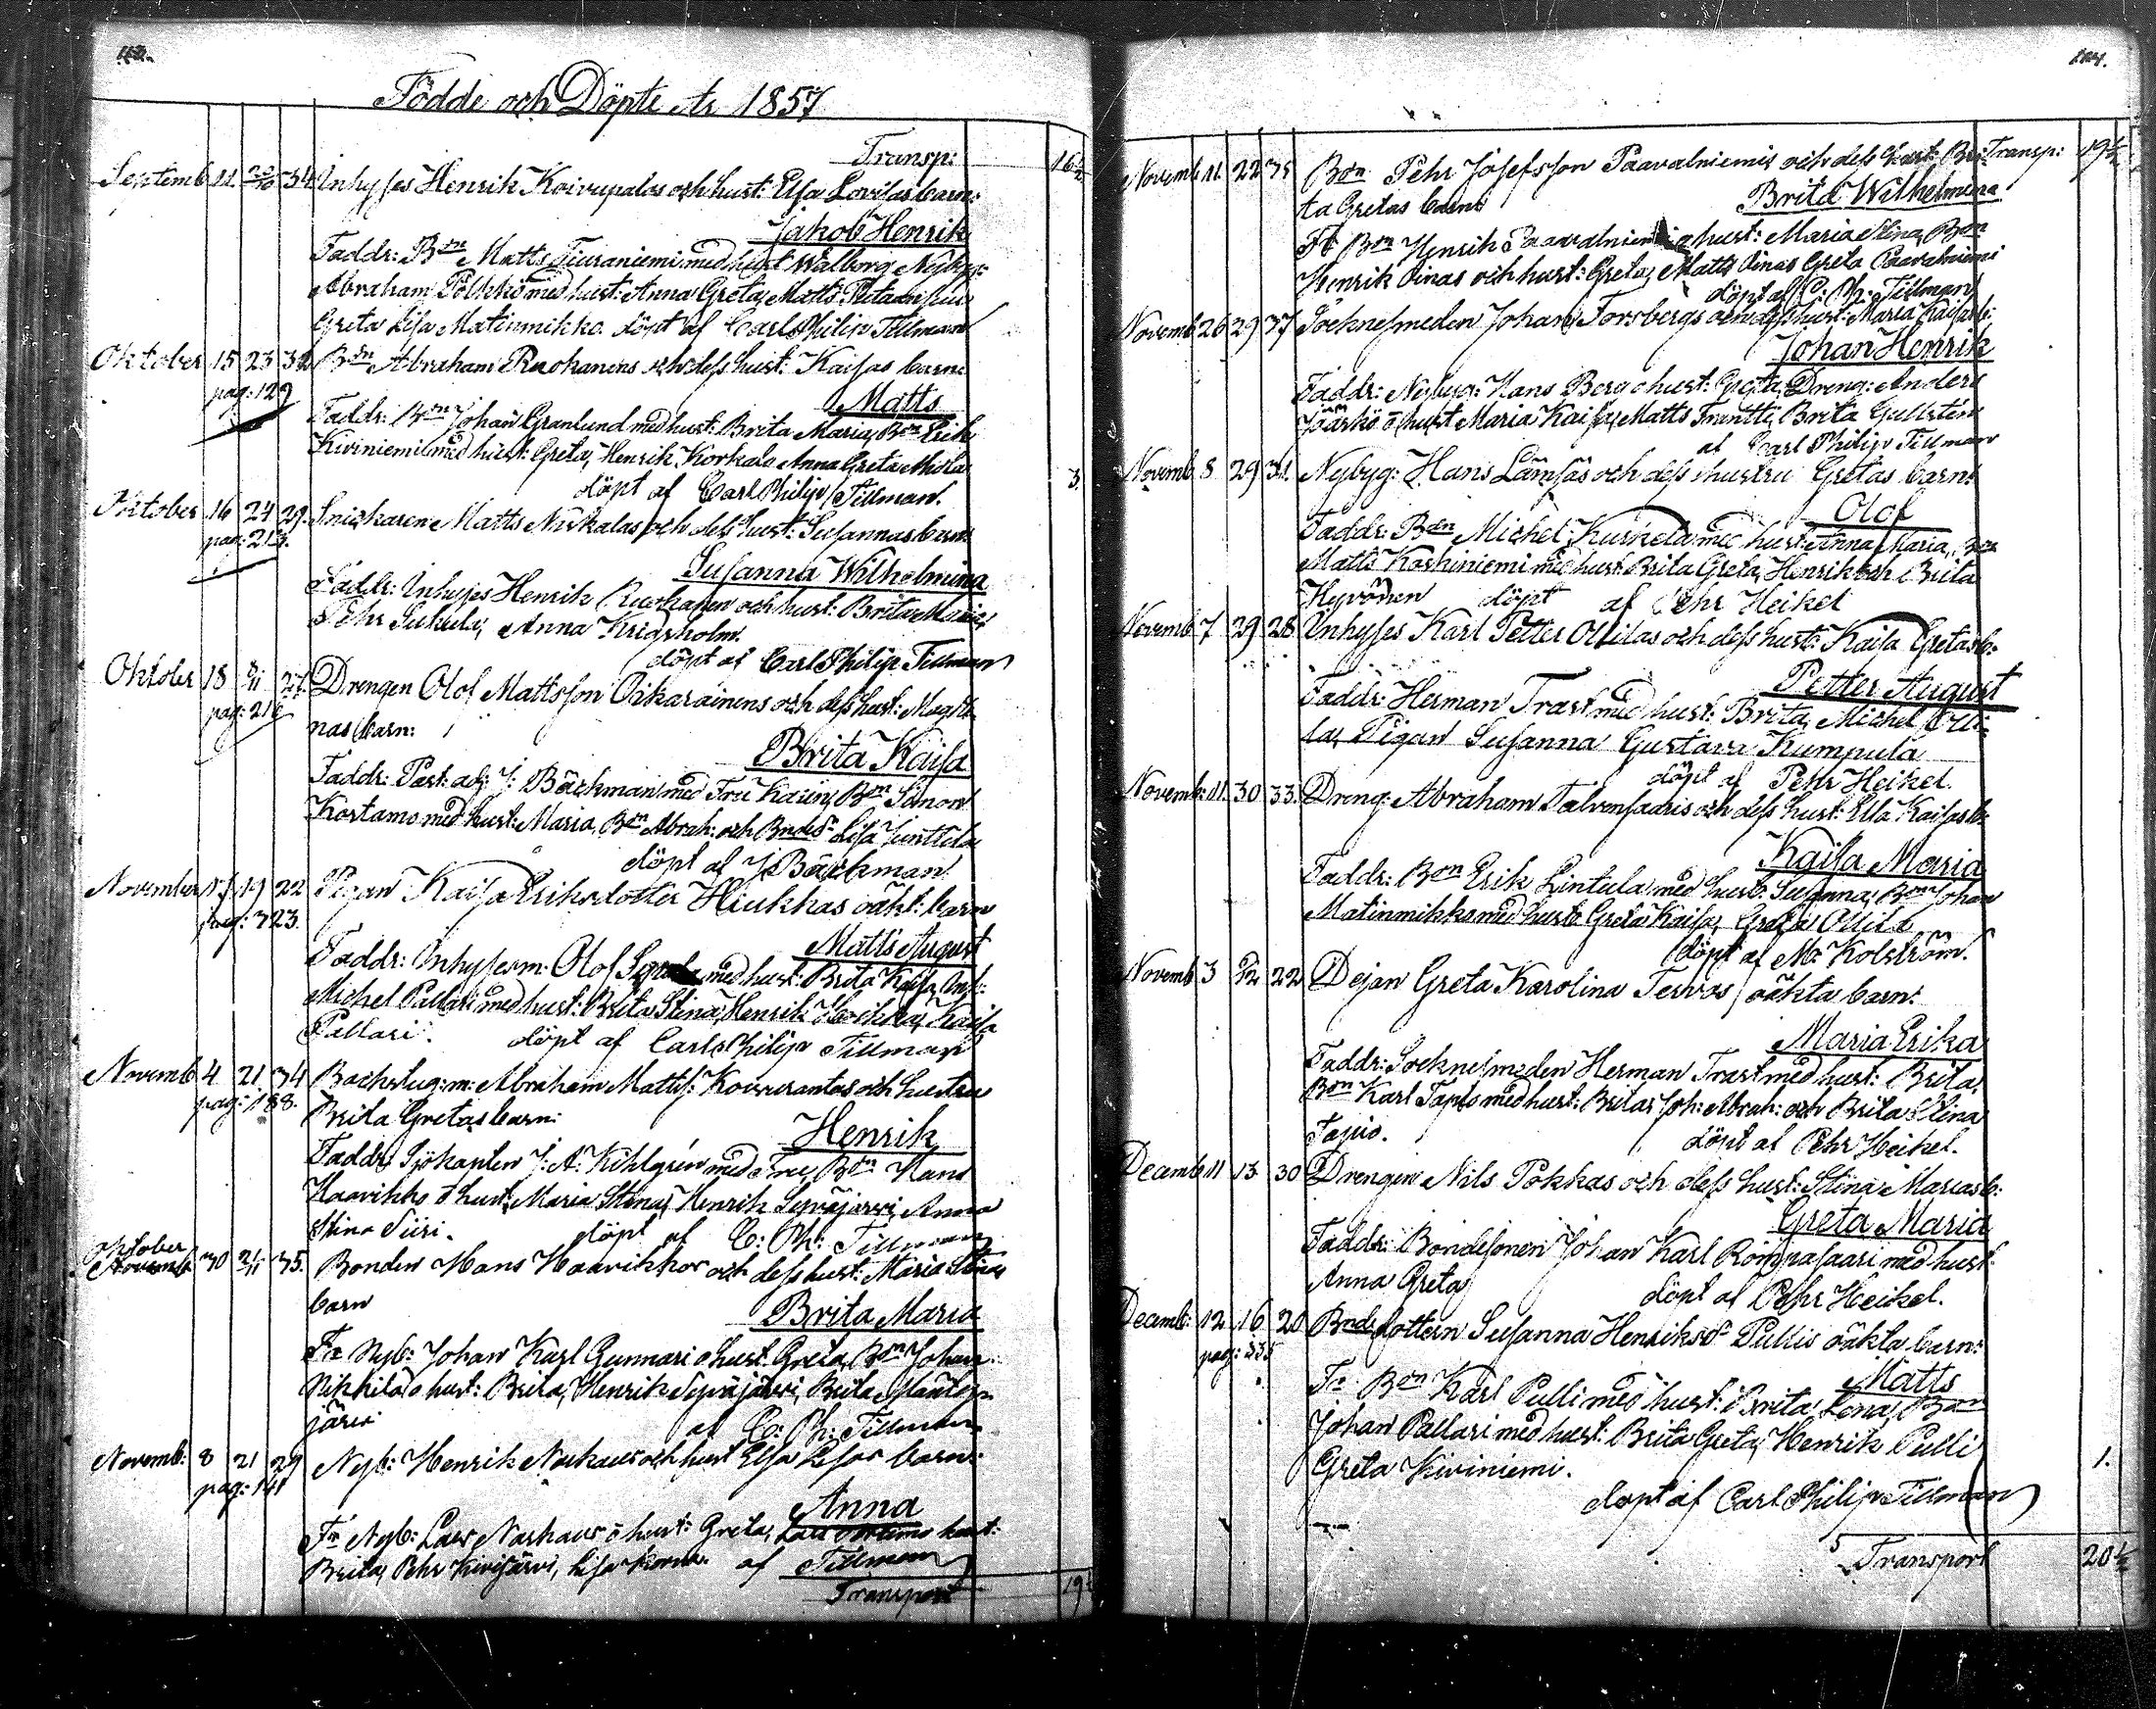 Födde och Döpte År 1857
Transp: 16½
Septemb 11. 34 Inhyses Henrik Koivupalos och hust: Elsa Lovisas barn:
Jakob Henrik
Faddr: Bon Matts Tiuraniemi med hust Walborg Nybyg:
Abraham Pölkkö med hust: Anna Greta, Matts
Greta Lisa Matinmikko döpt af Carl Philip Tillman
Oktober 15 23 Bdn Abraham Ruokanens och dess hust: Kaisas barn:
pag: 129
Matts
Faddr: Bon Johan Granlund med hust: Brita Maria, Bon Erik
Kiviniemi med hust: Greta, Henrik Korkala Anna Greta
döpt af Carl Philip Tillman. 3.
Oktober 16 24 29. Snickaren Matts Niskalas och dess hust: Susannas barn:
pag: 213.
Susanna Wilhelmina
Faddr: Inhyses Henrik Ruokanen och hust: Brita Maria,
Pehr Sukula, Anna Krigsholm.
döpt af Carl Philip Tillman
Oktober 18 8/11 27. Drengen Olof Mattsson Oikarainens och dess hust: Magdl
pag: 216
nas barn:
Brita Kaisa
Faddr: Past: adj: J: Bäckman med Fru Karin, Bon Simon
Kostamo med hust: Maria, Bon Abrah: och Bndsdr Lisa Junttila
döpt af J. Bäckman.
November 19 22 Pigan Kaisa Eriksdotter Hiukkas oäkt: barn
pag: 323.
Matts August
Faddr: Inhysesm: Olof med hust: Brita Kaisa, Inh:
Michel Pallari med hust: Brita Stina, Henrik Kaisa
Pallari. döpt af Carl Philip Tillman
Novemb 4 21 34 Backstug: m: Abraham Matts: Koivurantas och hustru
pag: 188.
Brita Gretas barn:
Henrik
Faddr Sjökapten J: A: Kihlgrén med Fru, Bon Hans
Haavikko o hust: Maria Stina, Henrik Sipväjärvi, Anna
Stina Siiri. döpt af C: Ph: Tillman
Oktober 30 21/11 35. Bonden Hans Haavikkos och dess hust: Maria Stinas
barn
Brita Maria
Fr Nyb: Johan Karl Gunnari o hust Greta, Bon Johan
Nikkilä o hust: Brita, Henrik Brita
järvi af C: Ph: Tillman
Novemb: 8 21 29 Nyb: Henrik Narkaus och hust Elsa Lisas barn:
pag: 141
Anna
Fr Nyb: Lars Narkaus o hust: Greta, Lars Portimo hust:
Brita, Pehr Kivijärvi, Lisa af Tillman
Transport 19½
Transp: 19½
Novemb 11. 22 35 Bon Pehr Josefsson Paavalniemis och dess hust: Bri
ta Gretas barn:
Brita Wilhelmina
Fr Bon Henrik Paavalniemi o hust: Maria Stina, Bon
Henrik Oinas och hust: Greta, Matts Oinas Greta Paavalniemi
döpt af C: Ph: Tillman
Novemb 26 29 37 Socknesmeden Johan Forsbergs och dess hust: Maria Kaisas b:
Johan Henrik
Faddr: Nybyg: Hans Berg o hust: Greta, Dreng: Anders
o hust Maria Kaisa, Matts Frantti, Brita Gullstén
af Carl Philip Tillman
Novemb 8 29 Nybyg: Hans Lämsäs och dess hustru Gretas barn:
Olof
Faddr: Bdn Michel Kurkela med hust: Anna Maria, Bon
Matts Koskiniemi med hust: Brita Greta, Henrik och Brita
Hyvönen döpt af Pehr Heikel
Novemb 7 29 28 Inhyses Karl Petter Ollilas och dess hust: Kaisa Gretas b:
Petter August
Faddr: Herman Trast med hust: Brita, Michel Olli-
la, Pigan Susanna Gustava Kumpula
döpt af Pehr Heikel.
Novemb: 11. 30 33. Dreng: Abraham Talvensaaris och dess hust: Ella Kaisas b:
Kaisa Maria
Faddr: Bon Erik Lintula med hust: Susanna, Bon Johan
Matinmikko med hust: Greta Kaisa, Greta Ollila
döpt af M: Kolström.
Novemb 3 22 Dejan Greta Karolina Tervos oäkta barn:
Maria Erika
Faddr: Socknesmeden Herman Trast med hust: Brita,
Bon Karl Tapio med hust: Brita, Joh: Abrah: och Brita Stina
Tapio. döpt af Pehr Heikel.
Decemb 11 13 30 Drengen Nils Pokkas och dess hust: Stina Marias b:
Greta Maria
Faddr: Bondesonen Johan Karl Rompasaari med hust:
Anna Greta döpt af Pehr Heikel.
Decemb: 12 16 20 Bndsdottern Susanna Henriksdr Pullis oäkta barn:
pag: 335
Matts
Fr Bon Karl Pulli med hust: Brita Lena, Bon
Johan Pallari med hust: Brita Greta, Henrik Pulli
Greta Kiviniemi. 1.
döpt af Carl Philip Tillman
Transport 20½